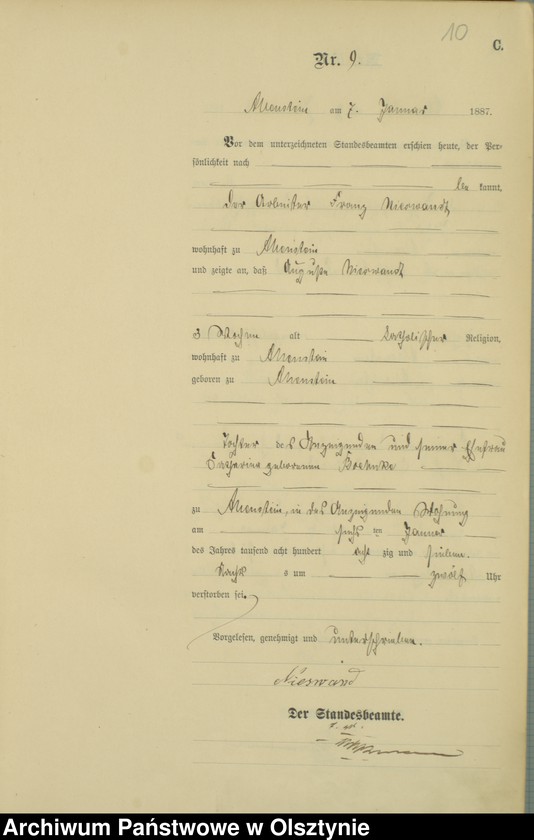 10
C.
Nr. 9.
Allenstein am 7. Januar 1887.
Vor dem unterzeichneten Standesbeamten erschien heute, der Per-
sönlichkeit nach
be kannt,
der Arbeiter Franz Nierwandt
wohnhaft zu Allenstein
und zeigte an, daß Auguste Nierwandt
3 Wochen alt katholischer Religion,
wohnhaft zu Allenstein
geboren zu Allenstein
Tochter des Anzeigenden und seiner Ehefrau
Catharina geborenen
zu Allenstein, in des Anzeigenden Wohnung
am sechs ten Januar
des Jahres tausend acht hundert acht zig und sieben
Nachts um zwölf Uhr
verstorben sei.
Vorgelesen, genehmigt und unterschrieben.
Nieswand
Der Standesbeamte.
Archiwum Państwowe w Olsztynie